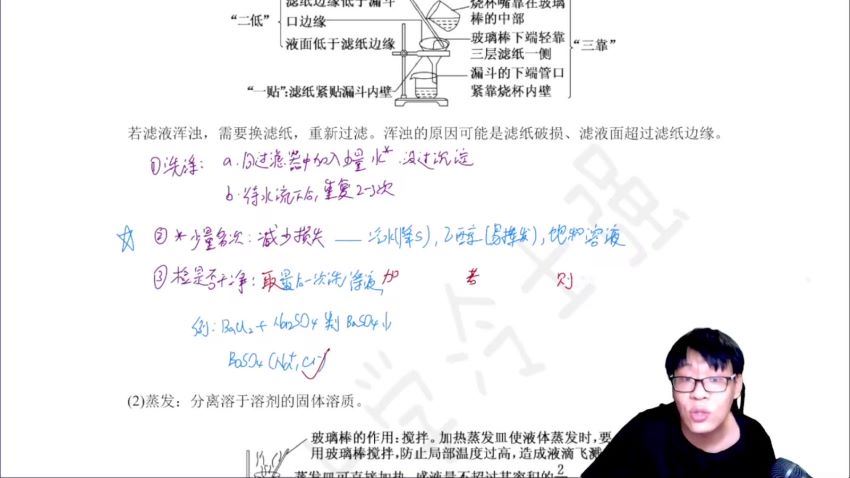 滤纸边缘低于漏斗
口边缘
“二低”
液面低于滤纸边缘
“一贴”:滤纸紧贴漏斗内壁
烧杯嘴靠在玻璃
棒的中部
玻璃棒下端轻靠
三层滤纸一侧
“三靠”
漏斗的下端管口
紧靠烧杯内壁
若滤液浑浊，需要换滤纸，重新过滤。浑浊的原因可能是滤纸破损、滤液面超过滤纸边缘。
①洗涤： a.向过滤器中加入少量水* 没过沉淀
b.待水流下后，重复2~3次
☆ ②*少量多次：减少损失 —— 冷水(降S)，乙醇(易挥发)，饱和溶液
③检是否干净：取最后一次洗涤液，加 若 则
例：BaCl₂+Na₂SO₄制BaSO₄↓
BaSO₄(Na⁺,Cl⁻)
(2)蒸发：分离溶于溶剂的固体溶质。
玻璃棒的作用：搅拌。加热蒸发皿使液体蒸发时，要
用玻璃棒搅拌，防止局部温度过高，造成液滴飞溅
蒸发皿可直接加热，盛液量不超过其容积的2